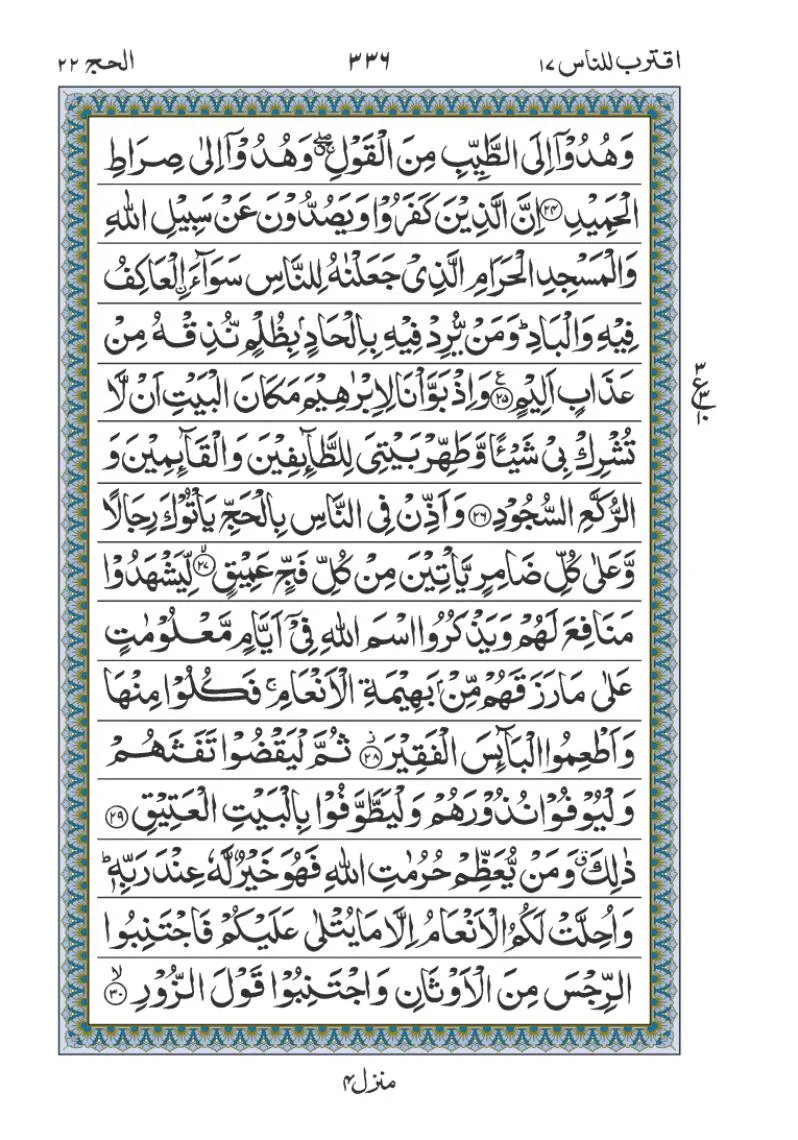 اقترب للناس ١٧
٣٣٦
الحج ٢٢
وَهُدُوْۤا اِلَى الطَّیِّبِ مِنَ الْقَوْلِ ۖۚ وَهُدُوْۤا اِلٰی صِرَاطِ
الْحَمِیْدِ ﴿۲۴﴾ اِنَّ الَّذِیْنَ كَفَرُوْا وَیَصُدُّوْنَ عَنْ سَبِیْلِ اللّٰهِ
وَالْمَسْجِدِ الْحَرَامِ الَّذِیْ جَعَلْنٰهُ لِلنَّاسِ سَوَآءَ ࣙالْعَاكِفُ
فِیْهِ وَالْبَادِ ؕ وَمَنْ یُّرِدْ فِیْهِ بِاِلْحَادٍۭ بِظُلْمٍ نُّذِقْهُ مِنْ
عَذَابٍ اَلِیْمٍ ﴿۲۵﴾ وَاِذْ بَوَّاْنَا لِاِبْرٰهِیْمَ مَكَانَ الْبَیْتِ اَنْ لَّا
تُشْرِكْ بِیْ شَیْـًٔا وَّطَهِّرْ بَیْتِیَ لِلطَّآىِٕفِیْنَ وَالْقَآىِٕمِیْنَ وَ
الرُّكَّعِ السُّجُوْدِ ﴿۲۶﴾ وَاَذِّنْ فِی النَّاسِ بِالْحَجِّ یَاْتُوْكَ رِجَالًا
وَّعَلٰی كُلِّ ضَامِرٍ یَّاْتِیْنَ مِنْ كُلِّ فَجٍّ عَمِیْقٍ ﴿۲۷﴾ۙ لِّیَشْهَدُوْا
مَنَافِعَ لَهُمْ وَیَذْكُرُوا اسْمَ اللّٰهِ فِیْۤ اَیَّامٍ مَّعْلُوْمٰتٍ
عَلٰی مَا رَزَقَهُمْ مِّنْۢ بَهِیْمَةِ الْاَنْعَامِ ۚ فَكُلُوْا مِنْهَا
وَاَطْعِمُوا الْبَآىِٕسَ الْفَقِیْرَ ﴿۲۸﴾ؗ ثُمَّ لْیَقْضُوْا تَفَثَهُمْ
وَلْیُوْفُوْا نُذُوْرَهُمْ وَلْیَطَّوَّفُوْا بِالْبَیْتِ الْعَتِیْقِ ﴿۲۹﴾
ذٰلِكَ ۗ وَمَنْ یُّعَظِّمْ حُرُمٰتِ اللّٰهِ فَهُوَ خَیْرٌ لَّهٗ عِنْدَ رَبِّهٖ ؕ
وَاُحِلَّتْ لَكُمُ الْاَنْعَامُ اِلَّا مَا یُتْلٰی عَلَیْكُمْ فَاجْتَنِبُوا
الرِّجْسَ مِنَ الْاَوْثَانِ وَاجْتَنِبُوْا قَوْلَ الزُّوْرِ ﴿۳۰﴾ۙ
٣
ع
٣
١٠
منزل ۴